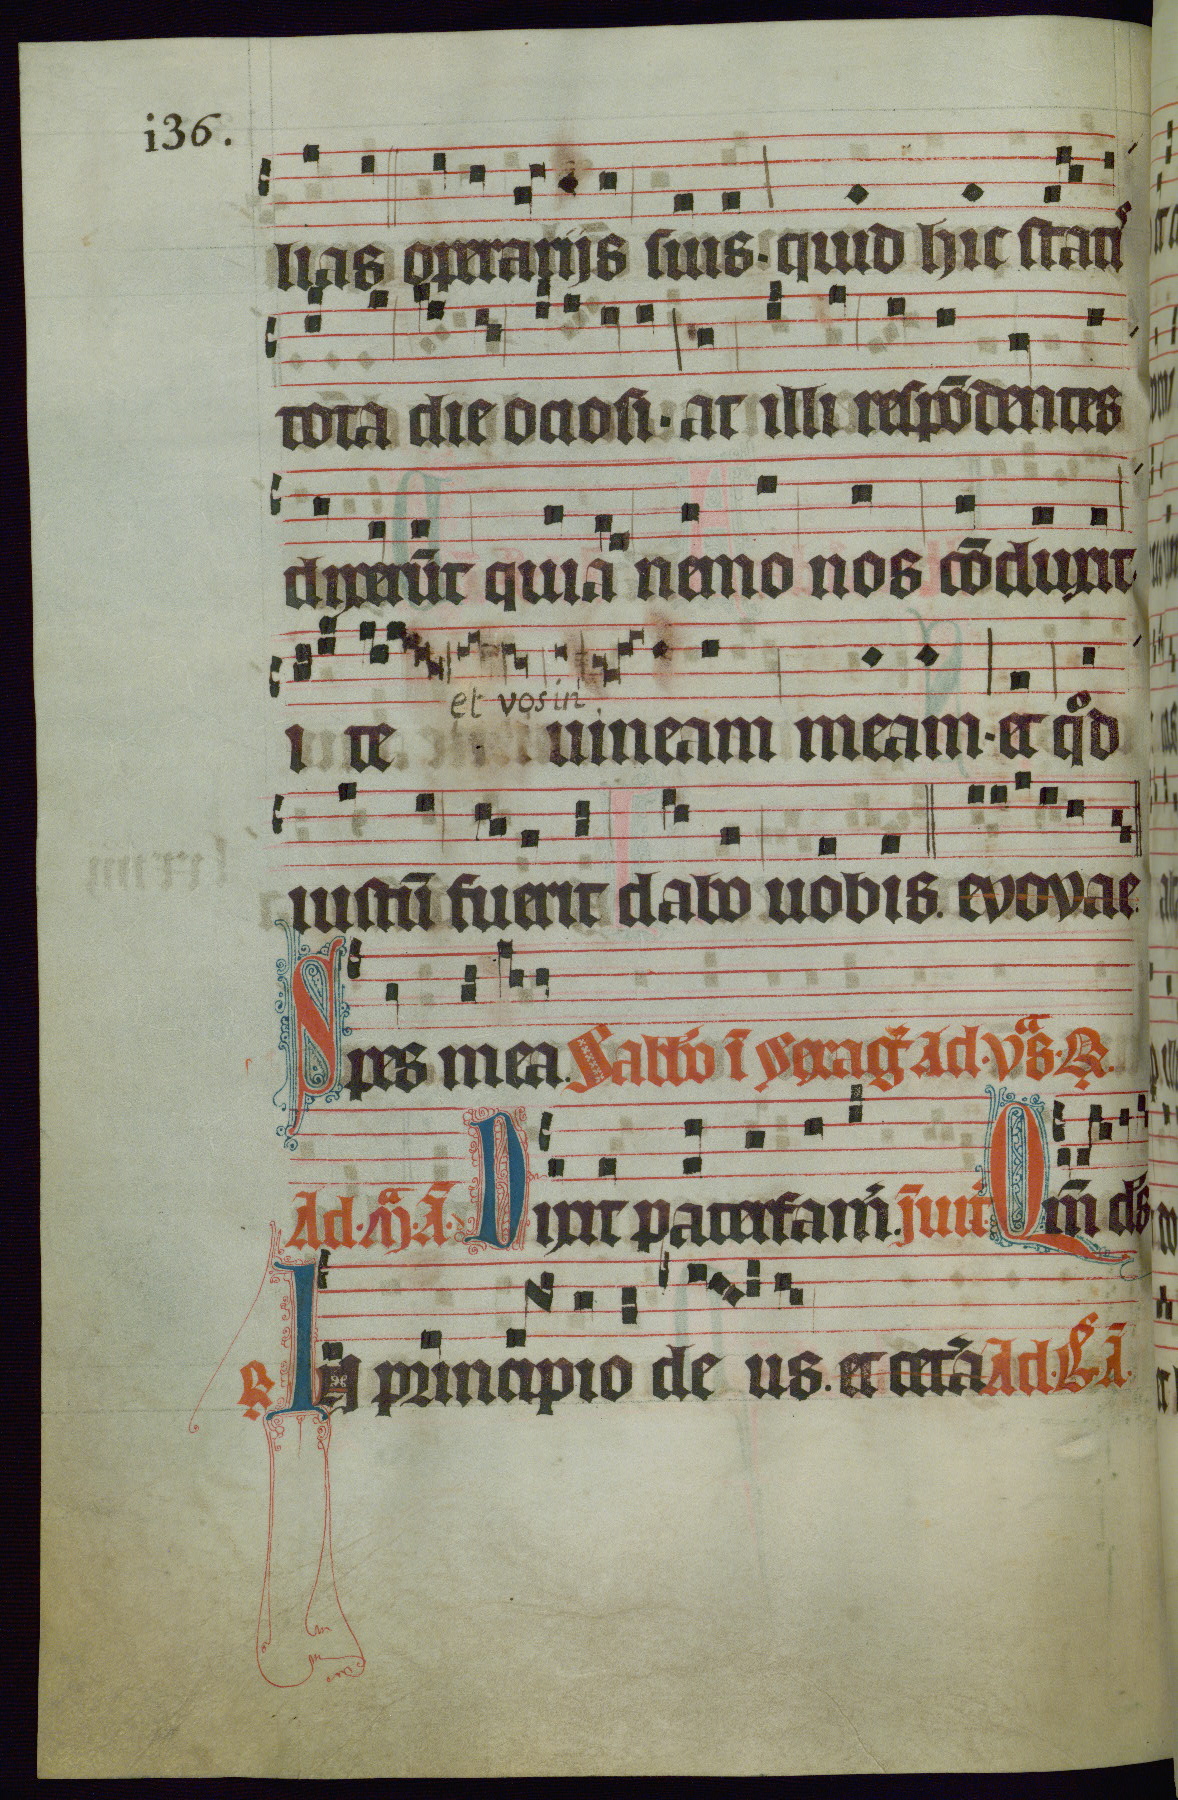 i36.
lias operarijs suis · quid hic statis
tota die ociosi · at illi respōdentes
dixerūt quia nemo nos cōduxit
et vos in
i te uineam meam · et qd
iustū fuerit dabo uobis. evovae
Spes mea. Sabbo ī Ad · R.
Ad · M · A · Dixit paterfam̄.
R In principio de us. et cetā Ad